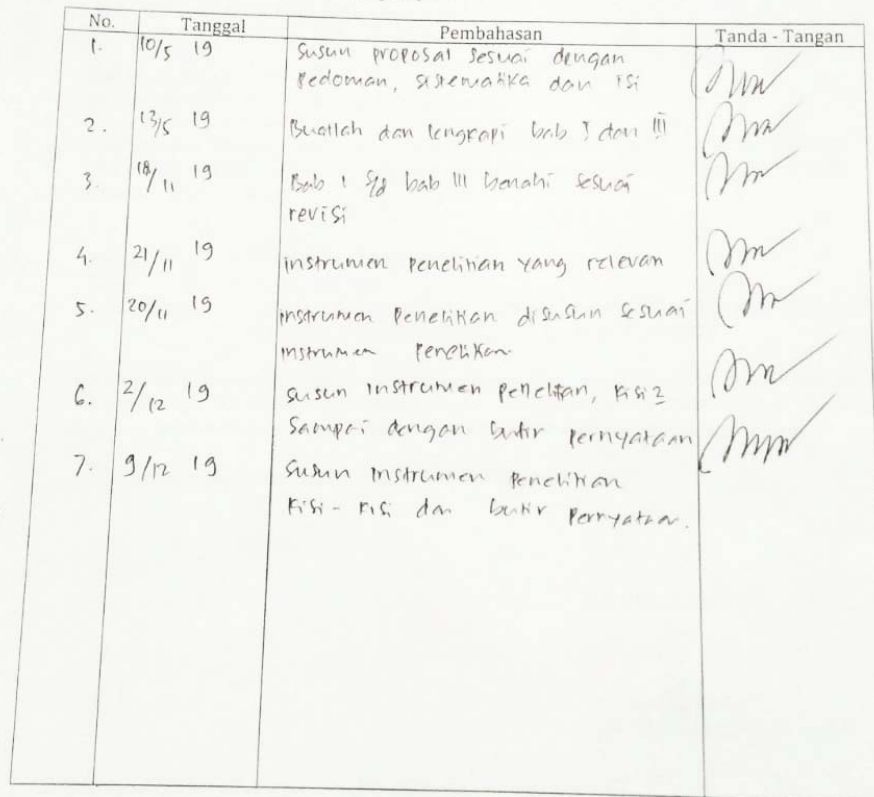 No. Tanggal Pembahasan Tanda - Tangan
1. 10/5 19 Susun proposal sesuai dengan
Pedoman, sistematika dan isi
2. 13/5 19 Buatlah dan lengkapi bab I dan III
3. 18/11 19 Bab I s/d bab III benahi sesuai
revisi
4. 21/11 19 instrumen penelitian yang relevan
5. 20/11 19 instrumen Penelitian disusun sesuai
instrumen Penelitian
6. 2/12 19 Susun instrumen penelitian, kisi2
Sampai dengan butir pernyataan
7. 9/12 19 Susun instrumen penelitian
kisi - kisi dan butir Pernyataan.